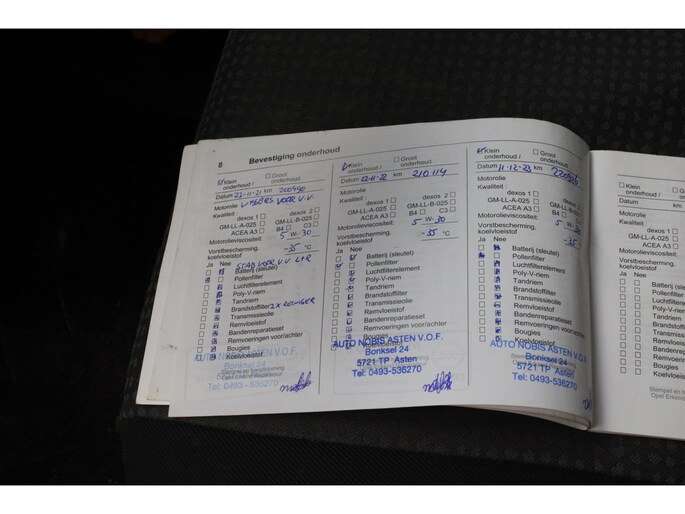 8 Bevestiging onderhoud
Klein onderhoud / Groot onderhoud
Datum 23-11-21 km
Motorolie
Kwaliteit dexos 1 dexos 2
GM-LL-A-025 GM-LL-B-025
ACEA A3 B4 C3
Motorolieviscositeit: 5 W-30
Vorstbescherming,
koelvloeistof -35 °C
Ja Nee
Batterij (sleutel)
Pollenfilter
Luchtfilterelement
Poly-V-riem
Tandriem
Brandstoffilter
Transmissieolie
Remvloeistof
Bandenreparatieset
Remvoeringen voor/achter
Bougies
Koelvloeistof
AUTO NOBIS ASTEN V.O.F.
Bonksel 24
5721 TP Asten
Tel: 0493-536270
Klein onderhoud / Groot onderhoud
Datum 02-11-22 km 210 114
Motorolie
Kwaliteit: dexos 1 dexos 2
GM-LL-A-025 GM-LL-B-025
ACEA A3 B4 C3
Motorolieviscositeit: 5 W-30
Vorstbescherming,
koelvloeistof -35 °C
Ja Nee
Batterij (sleutel)
Pollenfilter
Luchtfilterelement
Poly-V-riem
Tandriem
Brandstoffilter
Transmissieolie
Remvloeistof
Bandenreparatieset
Remvoeringen voor/achter
Bougies
AUTO NOBIS ASTEN V.O.F.
Bonksel 24
5721 TP Asten
Tel: 0493-536270
Klein onderhoud / Groot onderhoud
Datum 11-12-23 km
Motorolie
Kwaliteit: dexos 1 dexos 2
GM-LL-A-025 GM-LL-B-025
ACEA A3 B4 C3
Motorolieviscositeit: 5 W-30
Vorstbescherming,
koelvloeistof -35
Ja Nee
Batterij (sleutel)
Pollenfilter
Luchtfilterelement
Poly-V-riem
Tandriem
Brandstoffilter
Transmissieolie
Remvloeistof
Bandenreparatieset
Remvoeringen voor/achter
Bougies
Koelvloeistof
AUTO NOBIS ASTEN V.O.F.
Bonksel 24
5721 TP Asten
Tel: 0493-536270
Klein
onderhoud /
Datum
Motorolie
Kwaliteit:
GM-LL-A-025
ACEA A3
Motorolieviscositeit
Vorstbescherming,
koelvloeistof
Ja Nee
Batterij (sleutel)
Pollenfilter
Luchtfilterelement
Poly-V-riem
Tandriem
Brandstoffilter
Transmissieolie
Remvloeistof
Bougies
Koelvloeistof